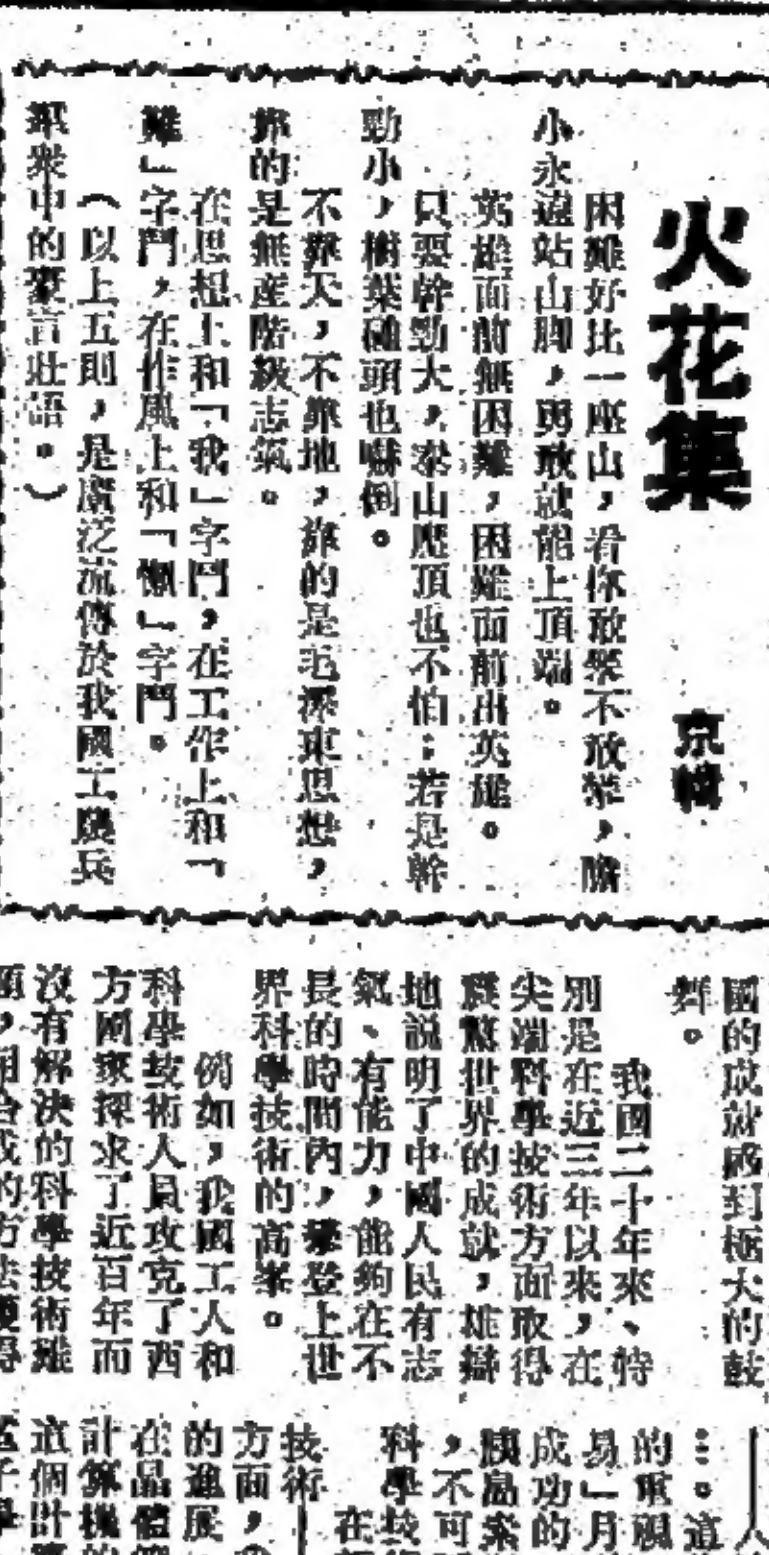 火花集
京輯
困難好比一座山，看你敢攀不敢攀，膽
小永遠站山脚，勇敢就能上頂端。
英雄面前無困難，困難面前出英雄。
只要幹勁大，泰山壓頂也不怕；若是幹
勁小，樹葉碰頭也嚇倒。
不靠天，不靠地，靠的是毛澤東思想，
靠的是無産階級志氣。
在思想上和「我」字鬥，在工作上和「
難」字鬥，在作風上和「懶」字鬥。
（以上五則，是廣泛流傳於我國工農兵
羣衆中的豪言壯語。）
國的成就感到極大的鼓
舞。
我國二十年來、特
別是在近三年以來，在
尖端科學技術方面取得
震驚世界的成就，雄辯
地説明了中國人民有志
氣、有能力，能夠在不
長的時間內，攀登上世
界科學技術的高峯。
例如，我國工人和
科學技術人員攻克了西
方國家探求了近百年而
没有解決的科學技術難
題，用合成的方法獲得
人
…。這
的電視
易」月
成功的
胰島素
，不可
科學技
在
技術
方面，我
的進展
在晶體管
計算機的
這個計算
電子學